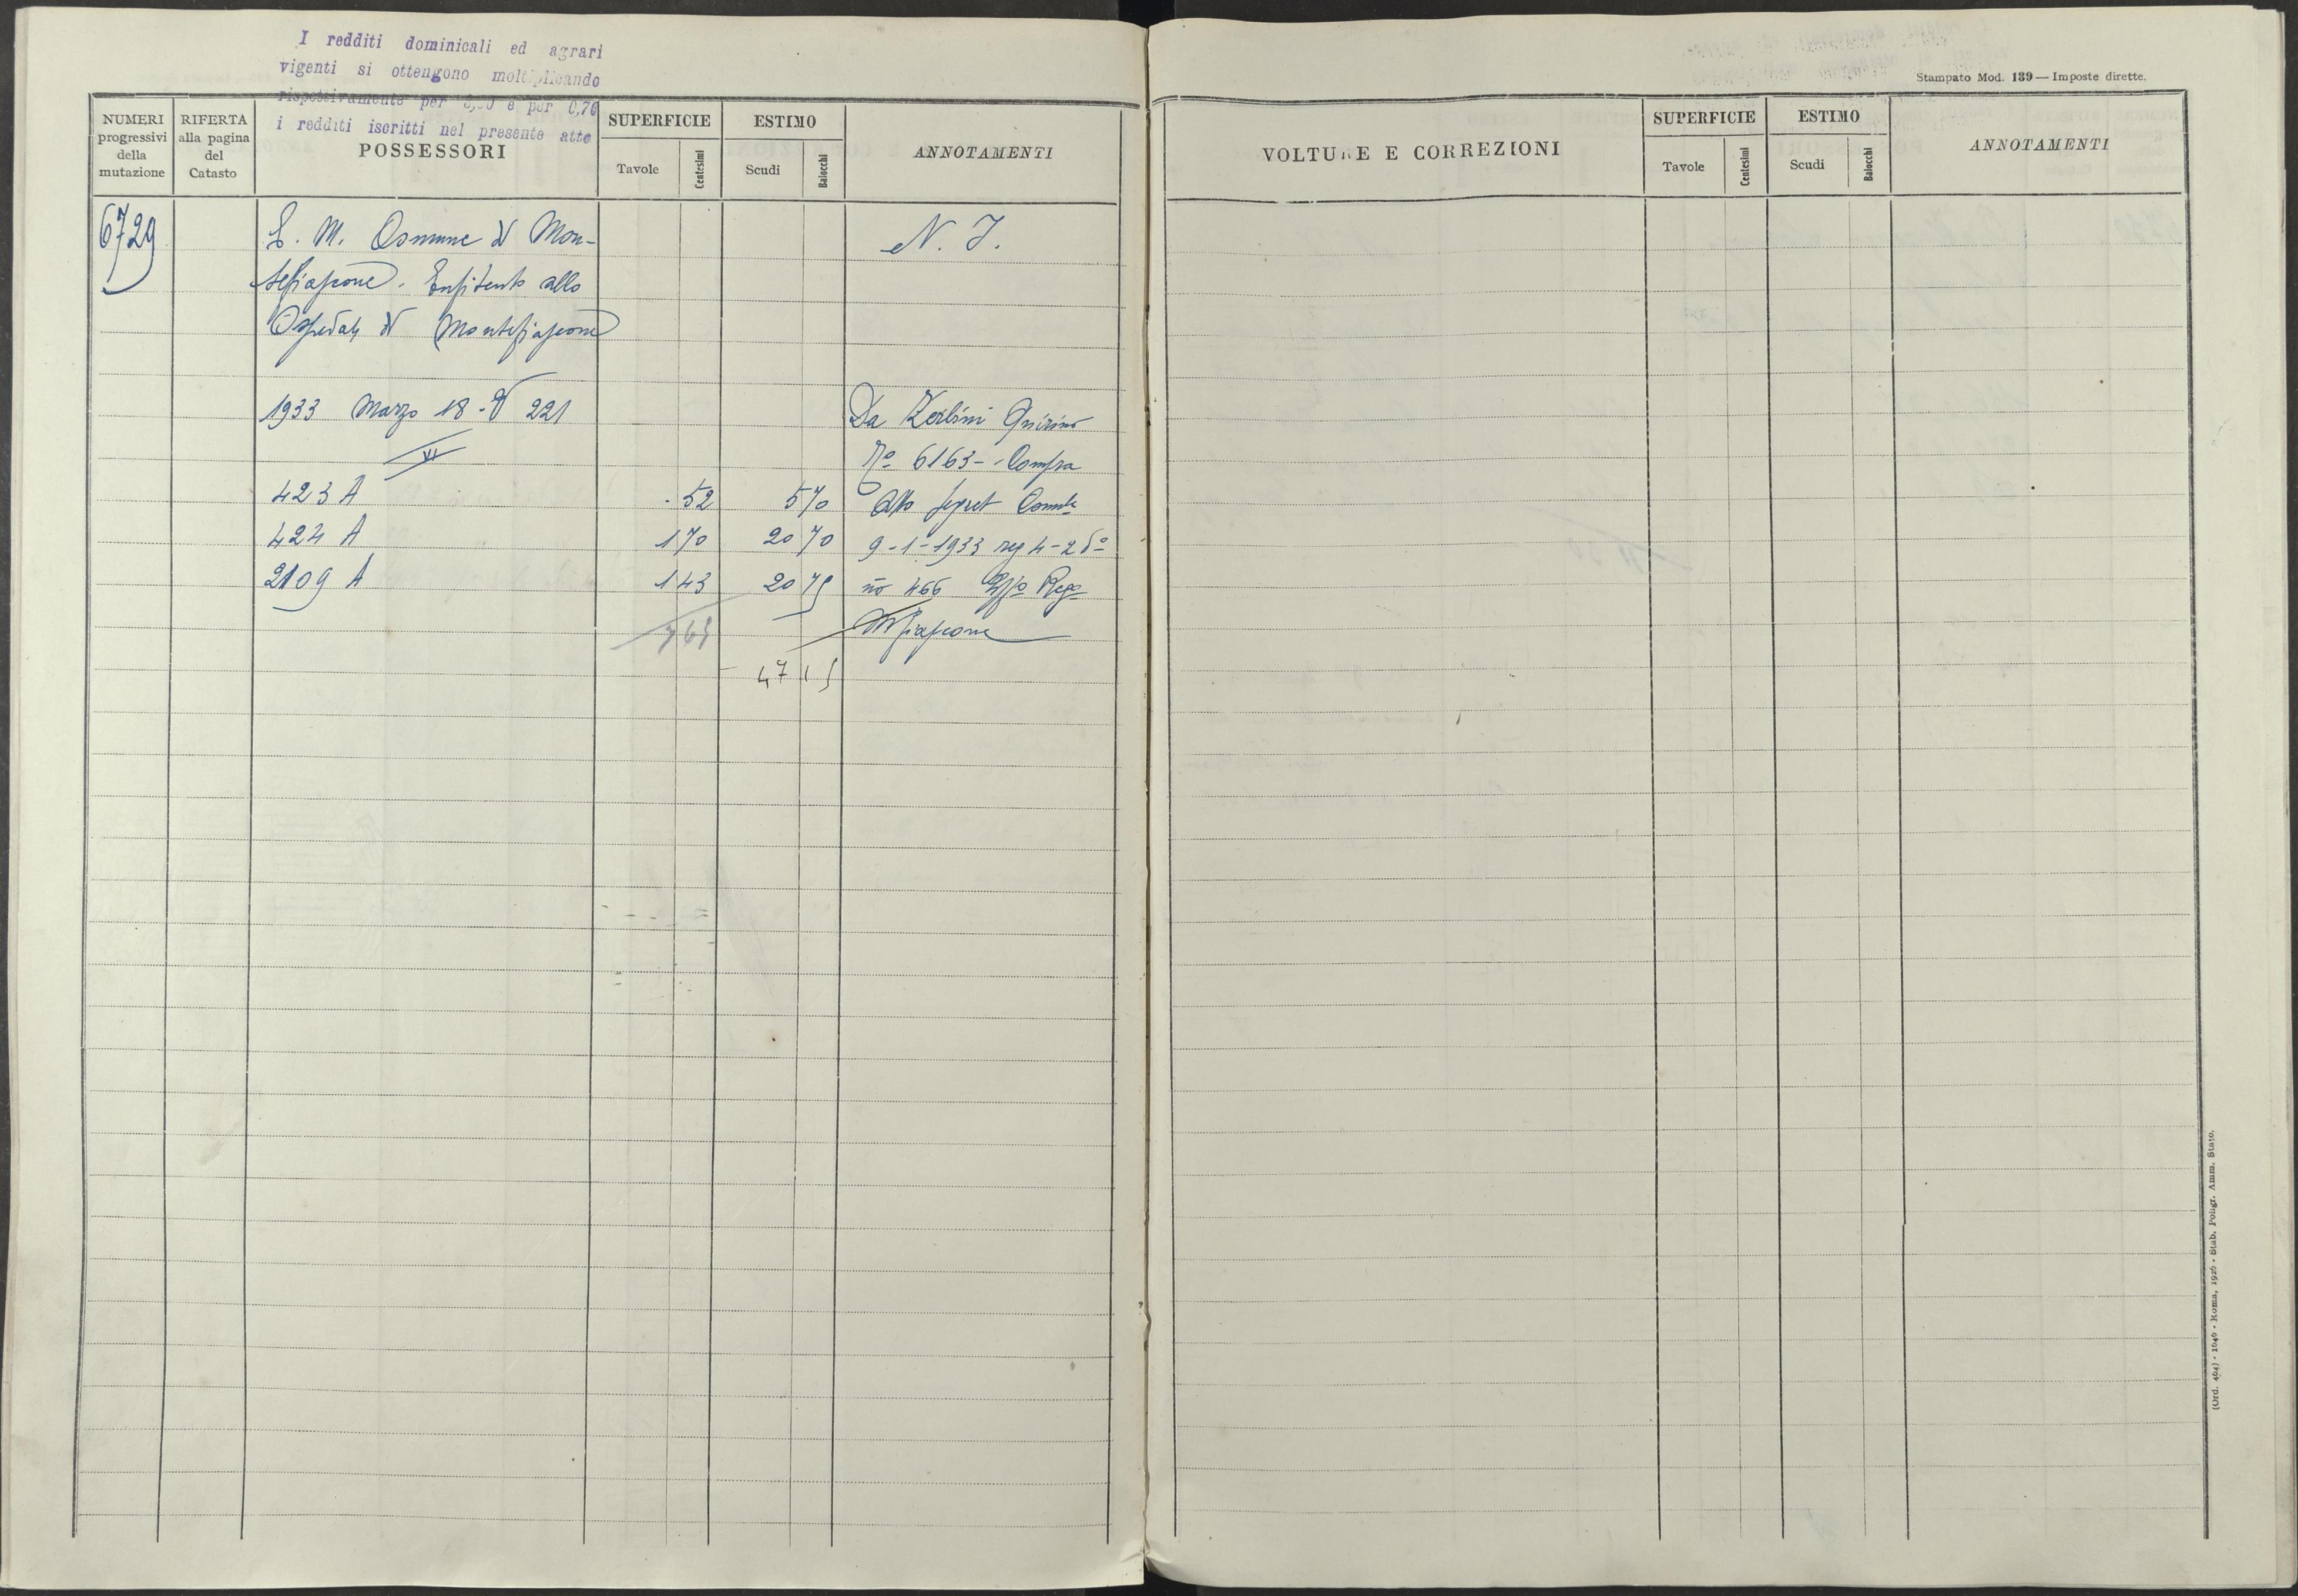 I redditi dominicali ed agrari
vigenti si ottengono moltiplicando
rispettivamente per e per 0,70
i redditi iscritti nel presente atto
Stampato Mod. 139 — Imposte dirette.
NUMERI progressivi della mutazione
RIFERTA alla pagina del Catasto
POSSESSORI
SUPERFICIE
Tavole
Centesimi
ESTIMO
Scudi
Baiocchi
ANNOTAMENTI
VOLTURE E CORREZIONI
SUPERFICIE
Tavole
Centesimi
ESTIMO
Scudi
Baiocchi
ANNOTAMENTI
6729
E. M. Comune di Mon-
tefiascone. Enfiteuta allo
Ospedale di Montefiascone
N. I.
1933 Marzo 18 - 221
VI
Da Zerbini Quirino
No 6163 - Compra
423 A 52 5 70 Atto Segret Comle
424 A 1 70 20 70 9-1-1933 reg 4-2 do
2109 A 1 43 20 75 no 466 Uffo Rego
3 65 Mtefiascone
47 15
(Ord. 404) - 1046 - Roma, 1926 - Stab. Poligr. Amm. Stato.